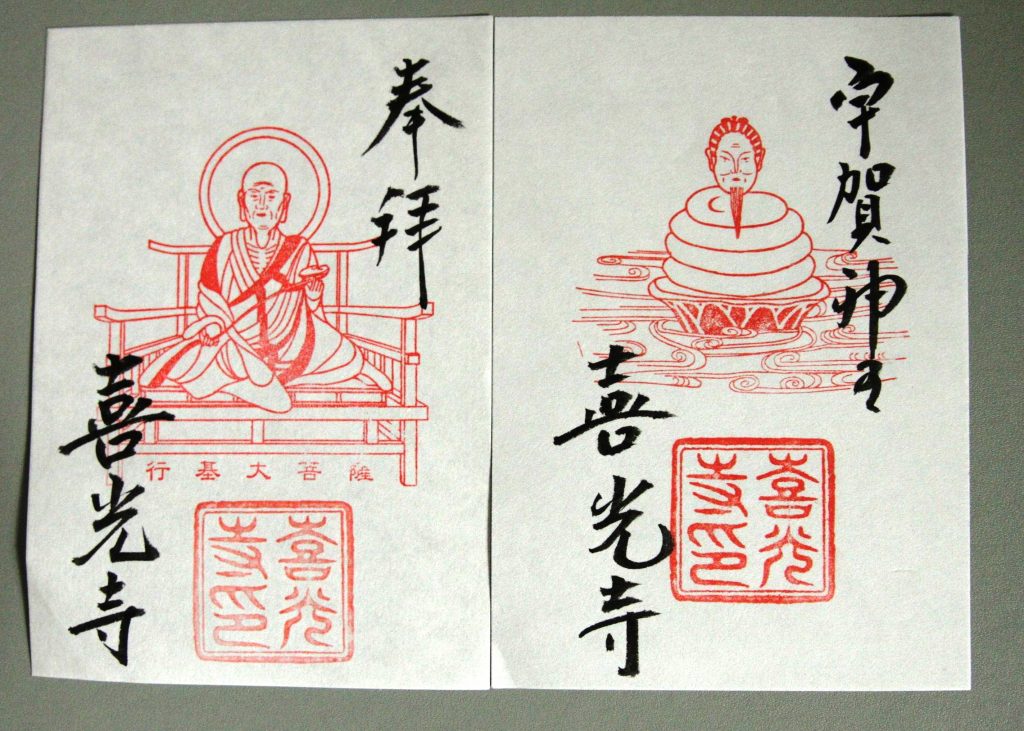 奉拝
行基大菩薩
喜光寺
喜光
寺印
宇賀神王
喜光寺
喜光
寺印